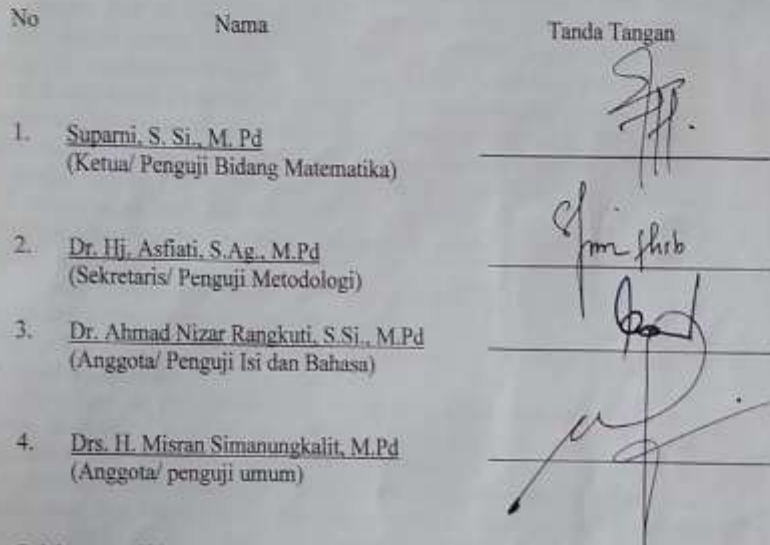 No Nama Tanda Tangan
1. Suparni, S. Si., M. Pd
(Ketua/ Penguji Bidang Matematika)
2. Dr. Hj. Asfiati, S.Ag., M.Pd
(Sekretaris/ Penguji Metodologi)
3. Dr. Ahmad Nizar Rangkuti, S.Si., M.Pd
(Anggota/ Penguji Isi dan Bahasa)
4. Drs. H. Misran Simanungkalit, M.Pd
(Anggota/ penguji umum)